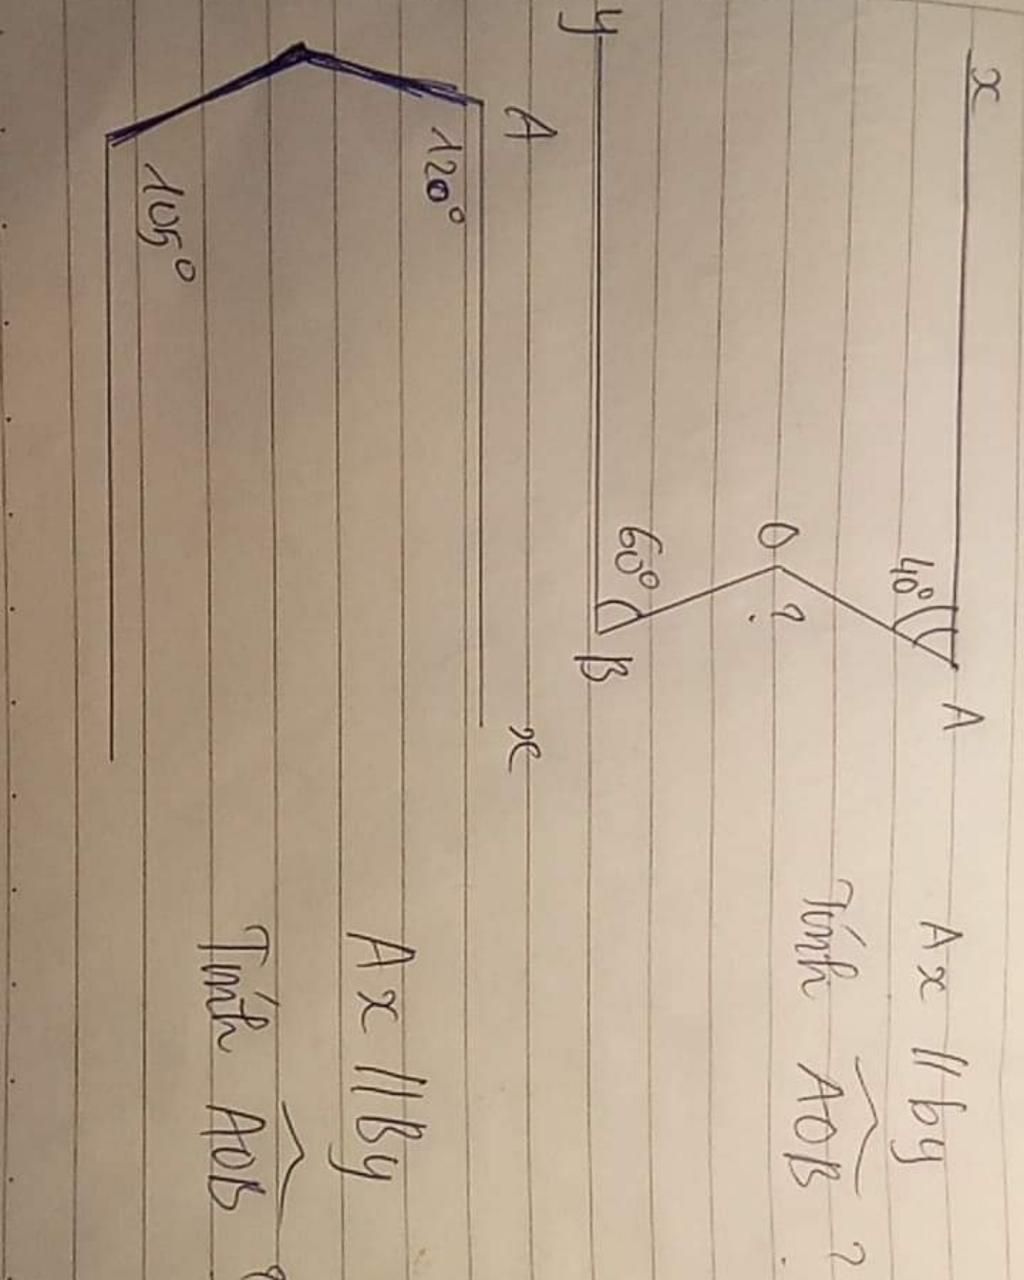 x
A
40°
O
?
60°
B
y
Ax // by
Tính AOB ?
A
x
120°
105°
Ax // By
Tính AOB